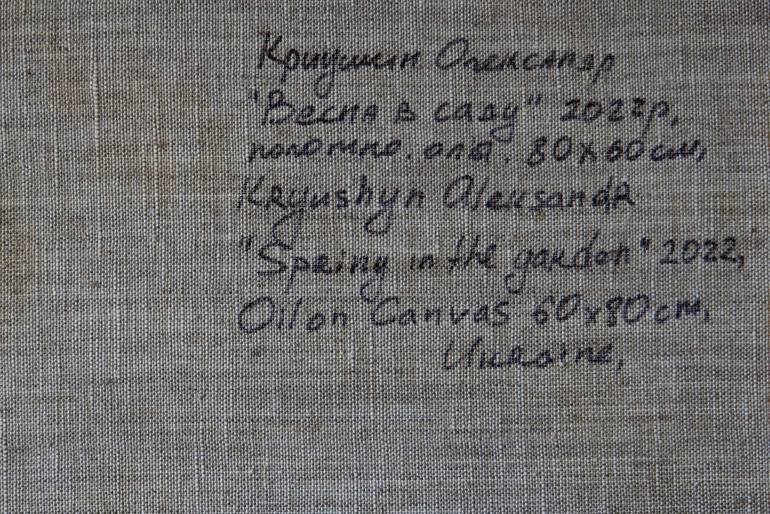 Криушин Олександр
"Весна в саду" 2022р,
полотно. олія. 80х60см,
Kryushyn Oleksandr
"Spring in the garden" 2022,
Oil on Canvas 60x80cm,
Ukraine,